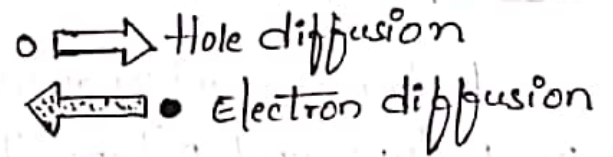 Hole diffusion
Electron diffusion